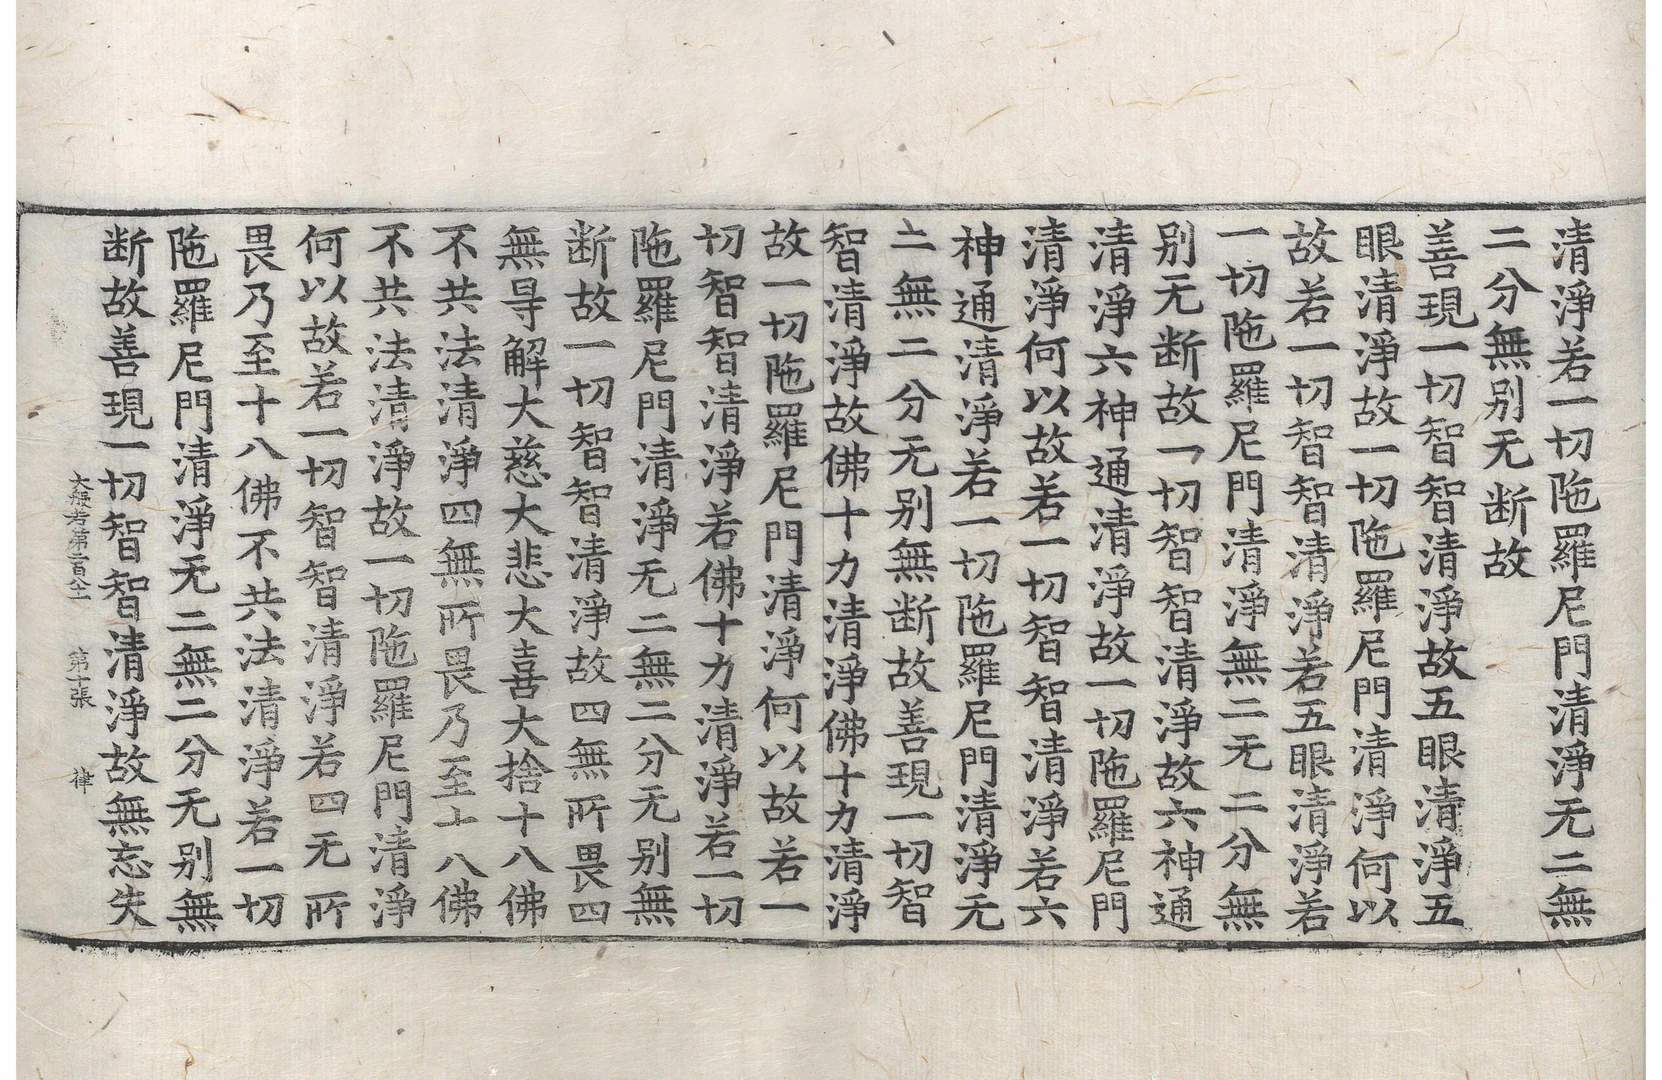 清淨若一切陁羅尼門清淨无二無
二分無别无断故
善現一切智智清淨故五眼清淨五
眼清淨故一切陁羅尼門清淨何以
故若一切智智清淨若五眼清淨若
一切陁羅尼門清淨無二无二分無
别无断故一切智智清淨故六神通
清淨六神通清淨故一切陁羅尼門
清淨何以故若一切智智清淨若六
神通清淨若一切陁羅尼門清淨无
二無二分无别無断故善現一切智
智清淨故佛十力清淨佛十力清淨
故一切陁羅尼門清淨何以故若一
切智智清淨若佛十力清淨若一切
陁羅尼門清淨无二無二分无别無
断故一切智智清淨故四無所畏四
無㝵解大慈大悲大喜大捨十八佛
不共法清淨四無所畏乃至十八佛
不共法清淨故一切陁羅尼門清淨
何以故若一切智智清淨若四无所
畏乃至十八佛不共法清淨若一切
陁羅尼門清淨无二無二分无别無
断故善現一切智智清淨故無忘失
大般若第二百八十一 第十張 律